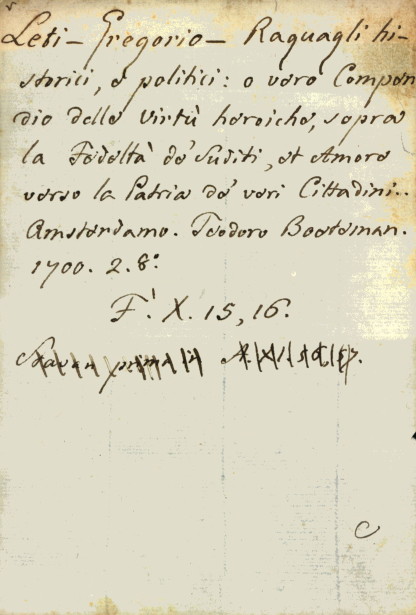 Leti - Gregorio - Raguagli hi-
storici, e politici: o vero Compen
dio delle virtù heroiche, sopra
la Fedeltà de' Suditi, et Amore
verso la Patria de' veri Cittadini..
Amsterdamo. Teodoro Boeteman.
1700. 2. 8.º
F.! X. 15, 16.
prima in
C